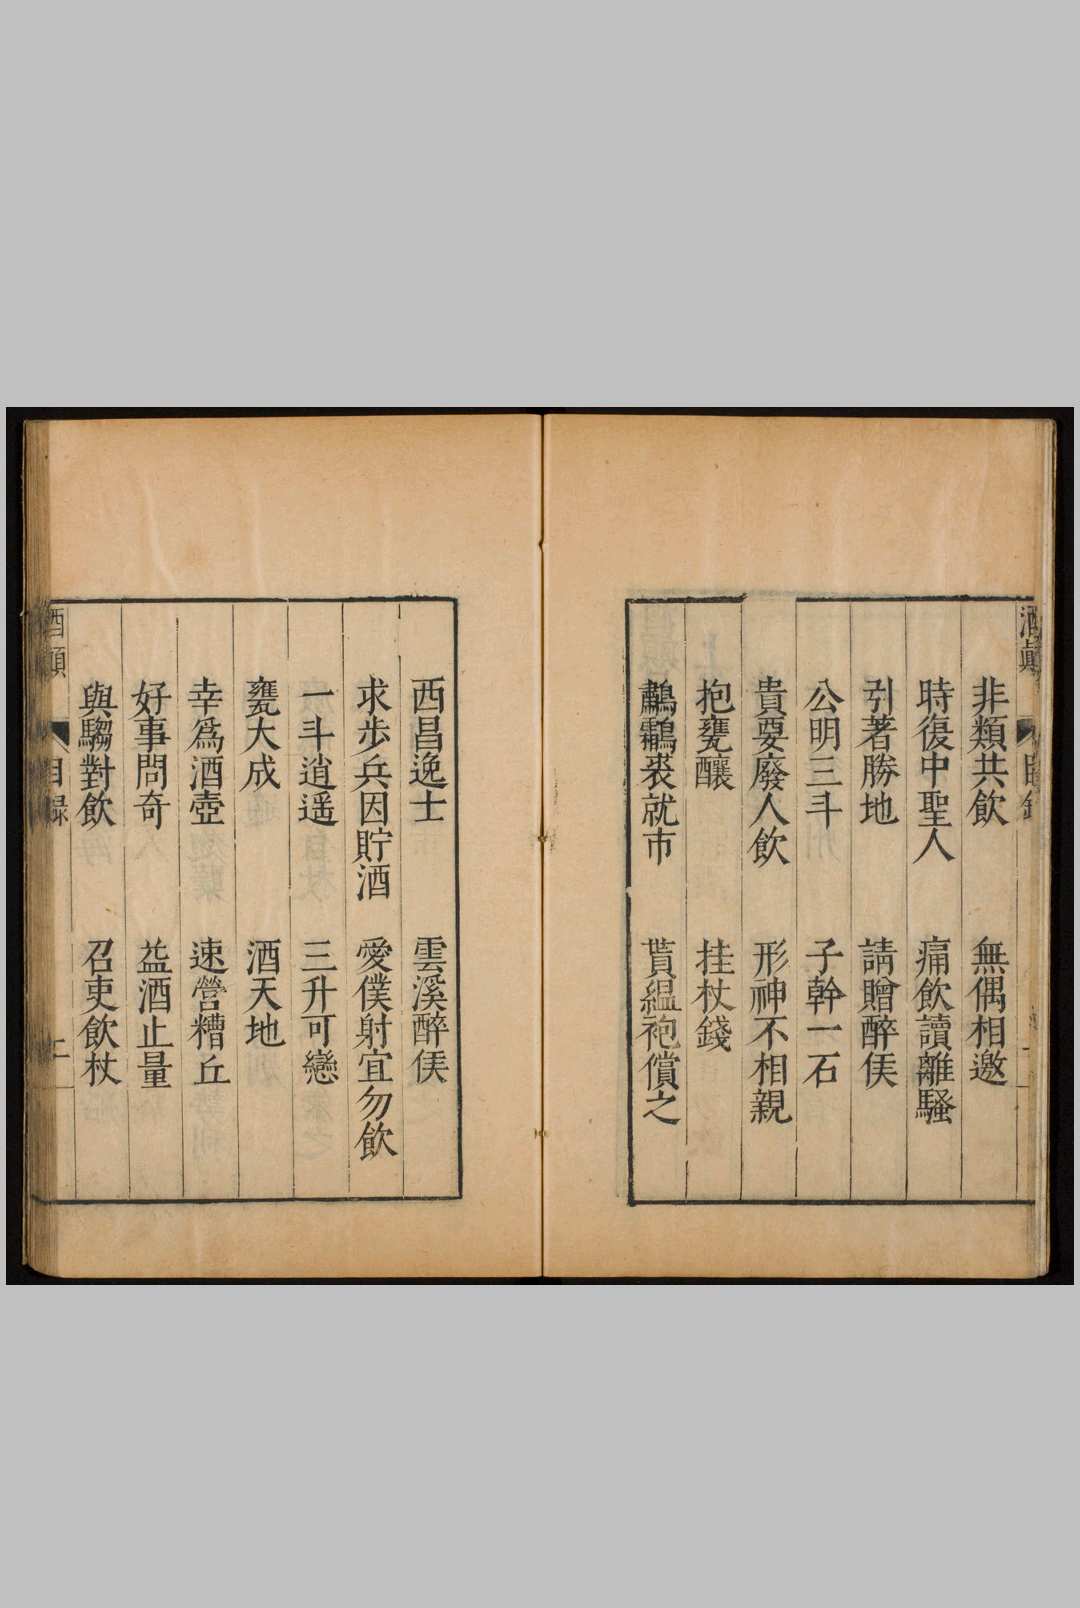 酒顛
目錄
非類共飲　無偶相邀
時復中聖人　痛飲讀離騷
引著勝地　請贈醉侯
公明三斗　子幹一石
貴要廢人飲　形神不相親
抱甕釀　挂杖錢
鷫鸘裘就市　貰縕袍償之
西昌逸士　雲溪醉侯
求步兵因貯酒　愛僕射宜勿飲
一斗逍遥　三升可戀
甕大成　酒天地
幸爲酒壺　速營糟丘
好事問奇　益酒止量
與騶對飲　召吏飲杖
酒顛
目錄